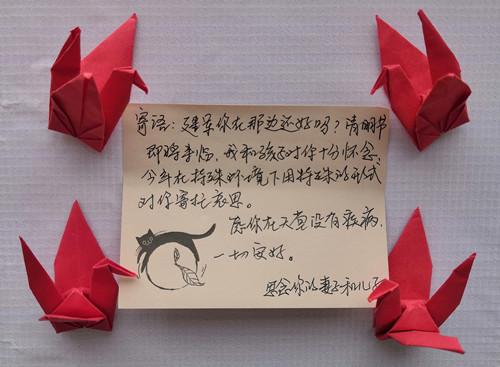 寄语：建军你在那边还好吗？清明节
即将来临，我和孩子对你十分怀念，
今年在特殊环境下用特殊的形式
对你寄托哀思。
愿你在天堂没有疾病，
一切安好。
思念你的妻子和儿子